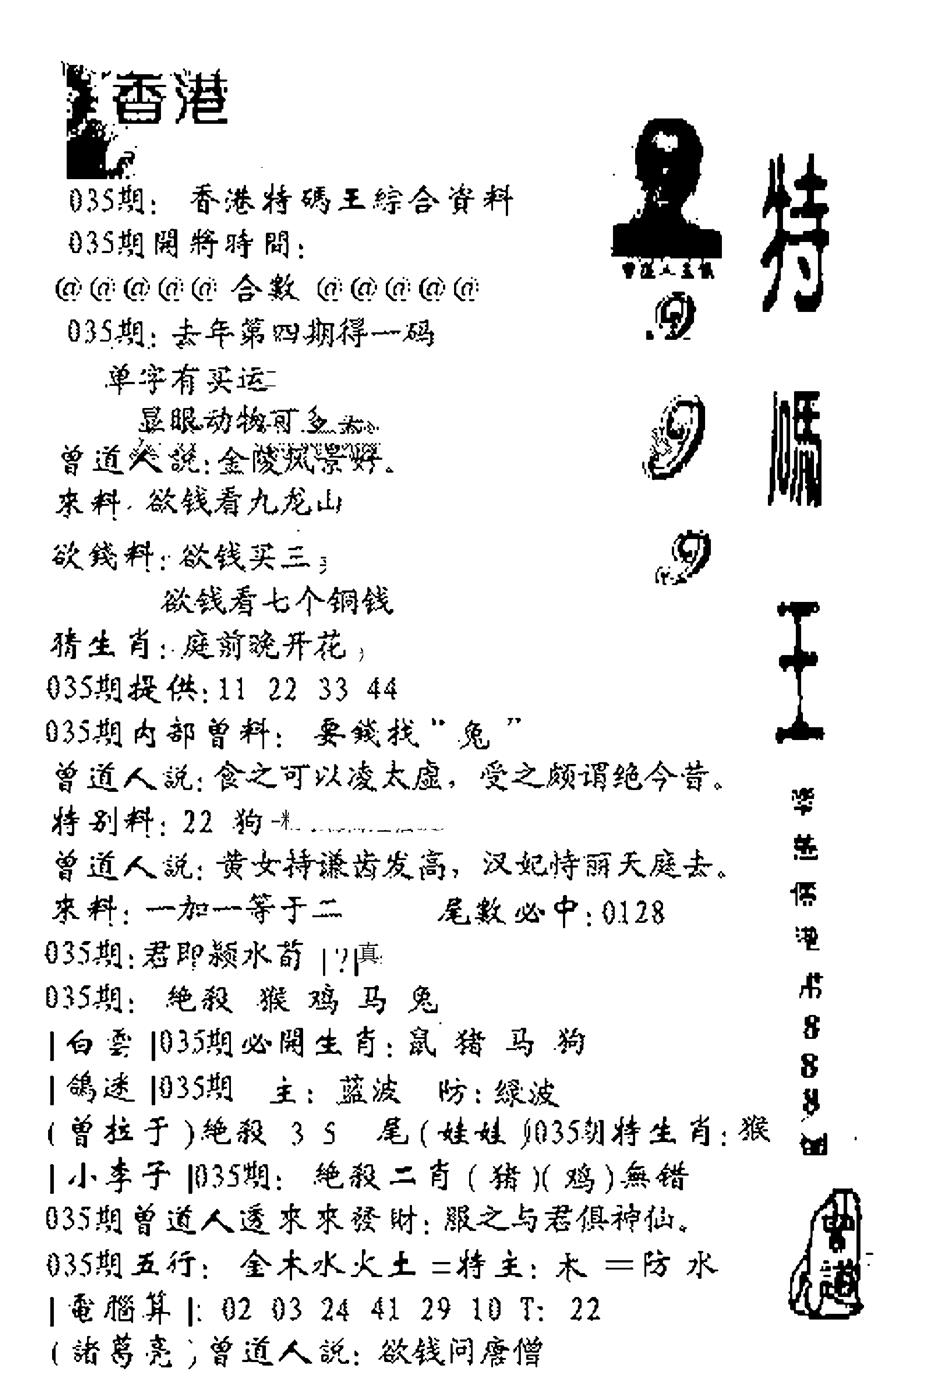 香港
035期: 香港特碼王綜合資料
035期開將時間:
@@@@@ 合數 @@@@@
035期: 去年第四期得一码
单字有买运
显眼动物可多
曾道人説:金陵风景好。
來料 欲钱看九龙山
欲錢料:欲钱买三
欲钱看七个铜钱
猜生肖:庭前晚开花
035期提供:11 22 33 44
035期内部曾料: 要錢找“兔”
曾道人説:食之可以凌太虚，受之颇谓绝今昔。
特别料:22 狗
曾道人説:黄女持谦齿发高，汉妃恃丽天庭去。
來料:一加一等于二 尾數必中:0128
035期:君即颍水荀 |?|真
035期: 絶殺 猴 鸡 马 兔
|白雲|035期必開生肖:鼠 猪 马 狗
|鴿迷|035期 主: 蓝波 防:緑波
(曾拉于)絶殺 3 5 尾(娃娃)035期特生肖:猴
|小李子|035期: 絶殺二肖(猪)(鸡)無错
035期曾道人透來來發財:服之与君俱神仙。
035期五行: 金木水火土=特主:木 =防 水
|電腦算|: 02 03 24 41 29 10 T: 22
(諸葛亮)曾道人説: 欲钱问唐僧
特碼王
888
曾道